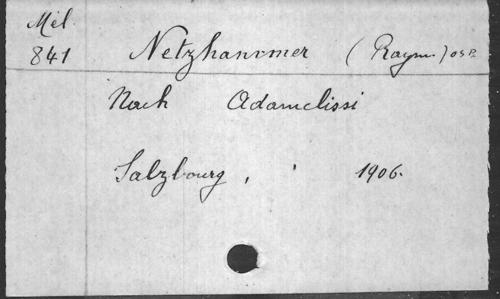 Mél.
841
Netzhammer (Raym.) OSB.
Nach Adamclissi
Salzbourg, ' 1906.